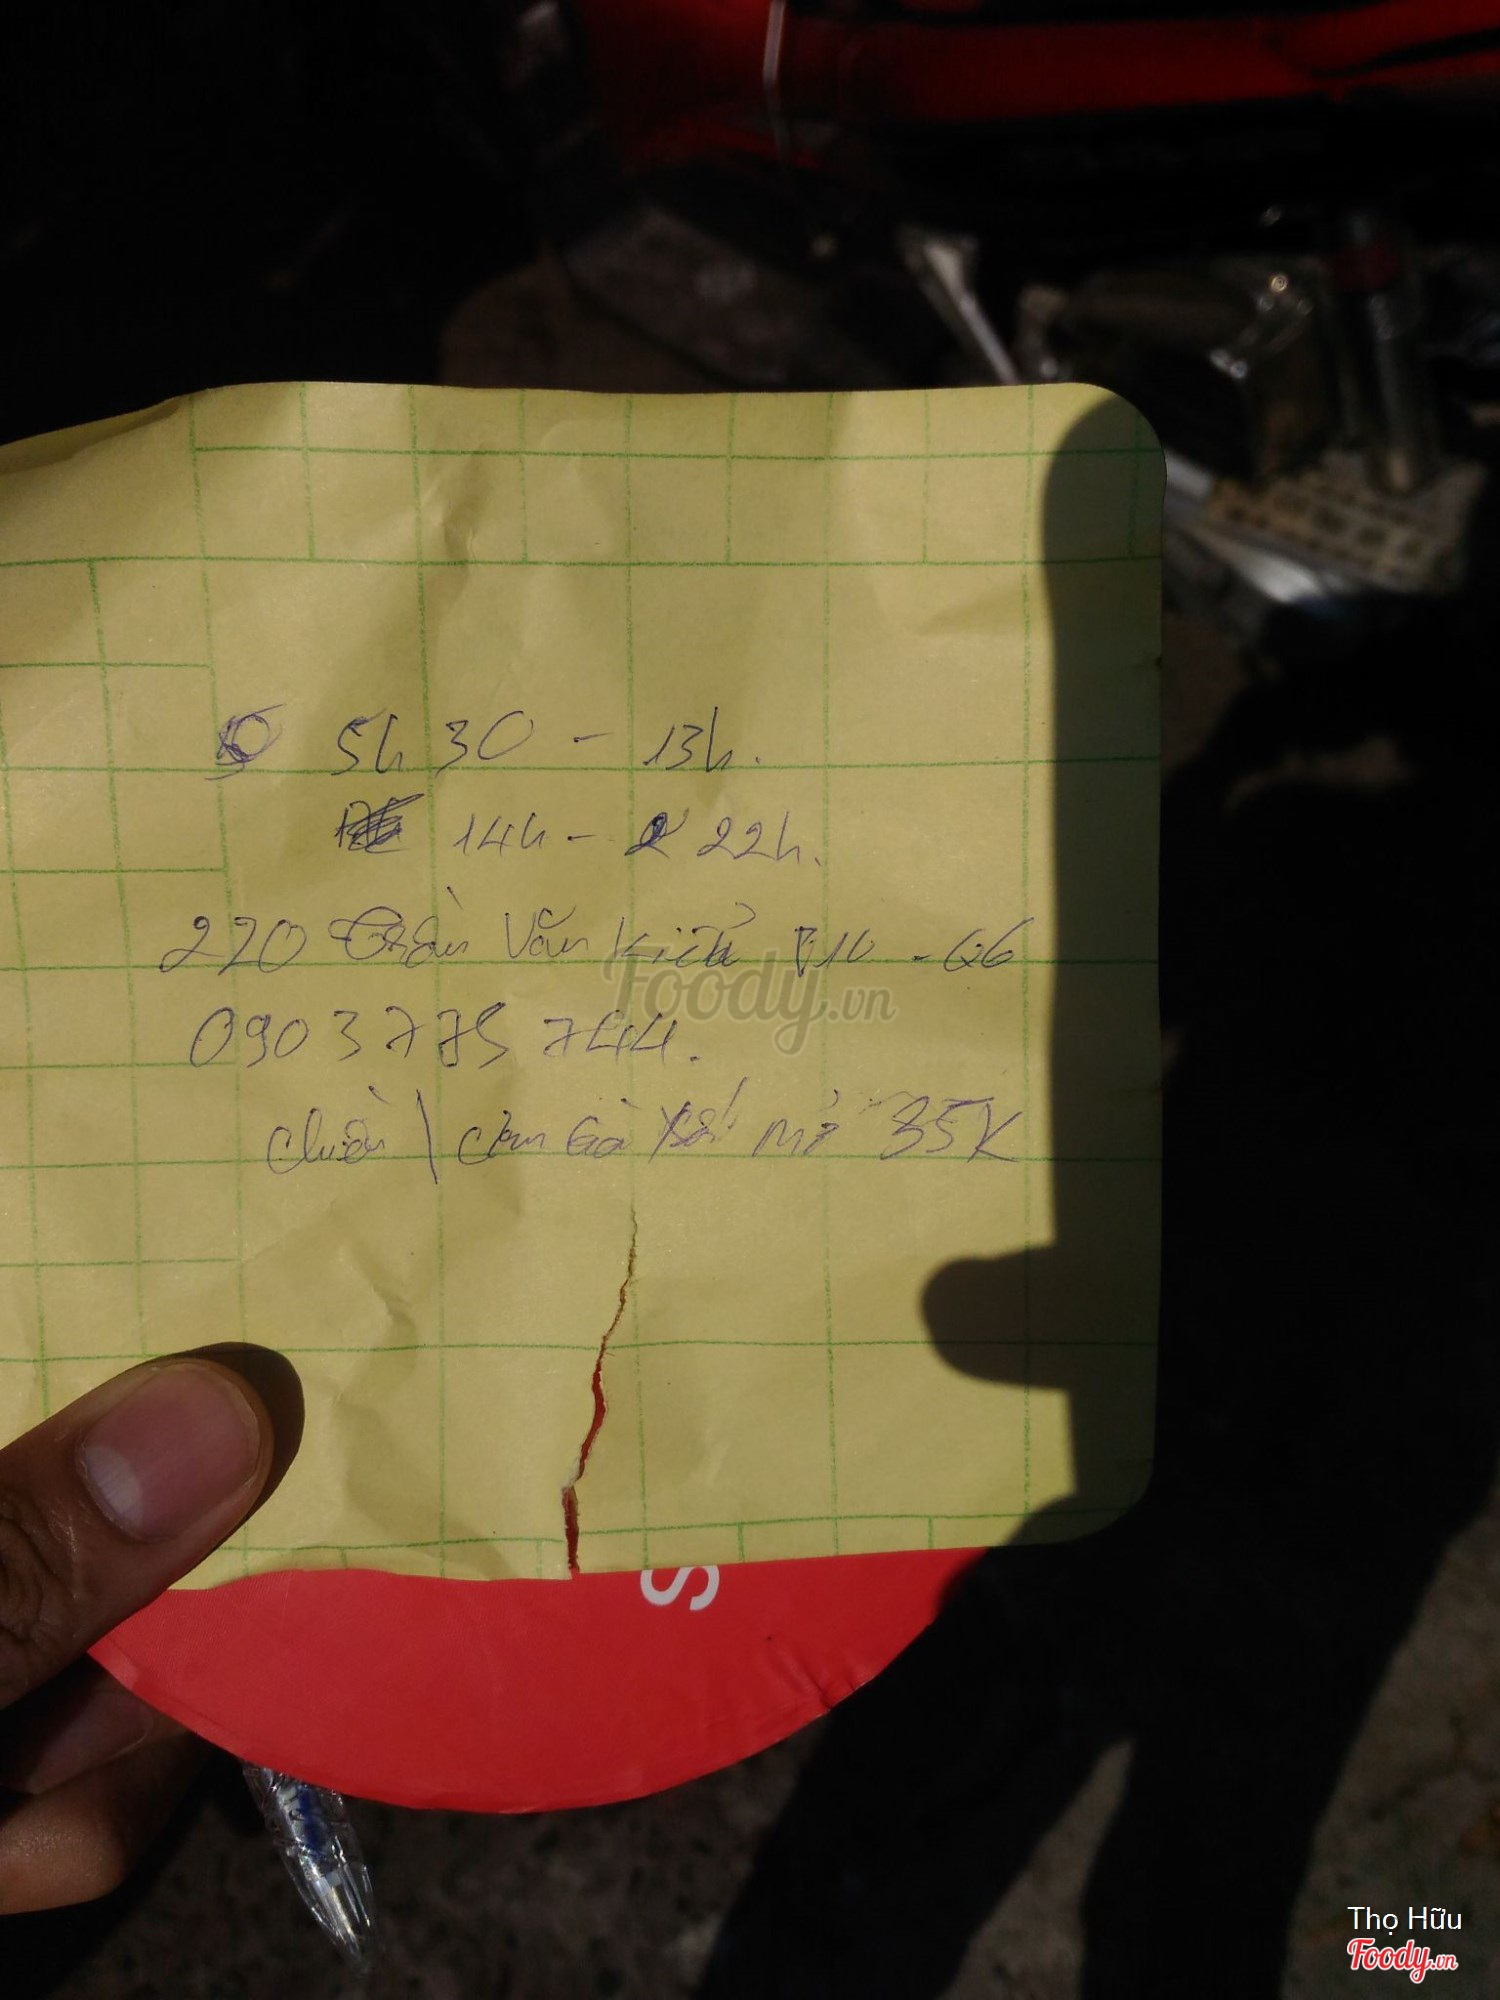 5h30 - 13h.
14h - 22h.
220 Trần Văn Kiểu F10 - Q6
0903 775 744.
chiều \ cơm Gà xối mỡ 35K
Foody.vn
S
Thọ Hữu
Foody.vn